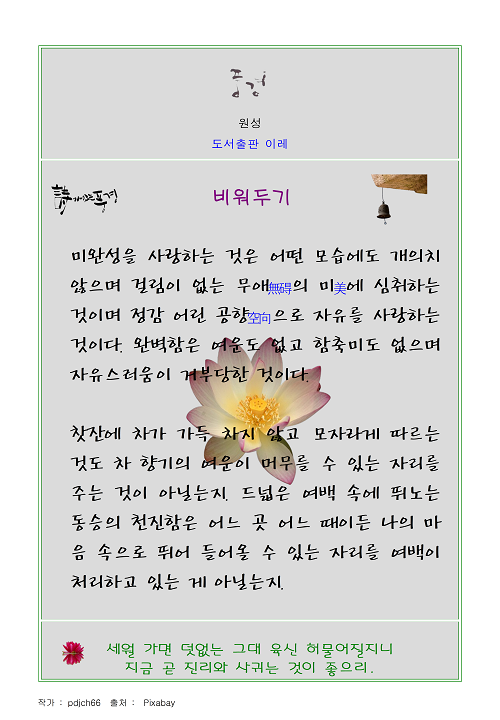 풍경
원성
도서출판 이레
詩가있는풍경
비워두기
미완성을 사랑하는 것은 어떤 모습에도 개의치
않으며 걸림이 없는 무애無碍의 미美에 심취하는
것이며 정감 어린 공향空向으로 자유를 사랑하는
것이다. 완벽함은 여운도 없고 함축미도 없으며
자유스러움이 거부당한 것이다.
찻잔에 차가 가득 차지 않고 모자라게 따르는
것도 차 향기의 여운이 머무를 수 있는 자리를
주는 것이 아닐는지. 드넓은 여백 속에 뛰노는
동승의 천진함은 어느 곳 어느 때이든 나의 마
음 속으로 뛰어 들어올 수 있는 자리를 여백이
처리하고 있는 게 아닐는지.
세월 가면 덧없는 그대 육신 허물어질지니
지금 곧 진리와 사귀는 것이 좋으리.
작가 : pdjch66 출처 : Pixabay